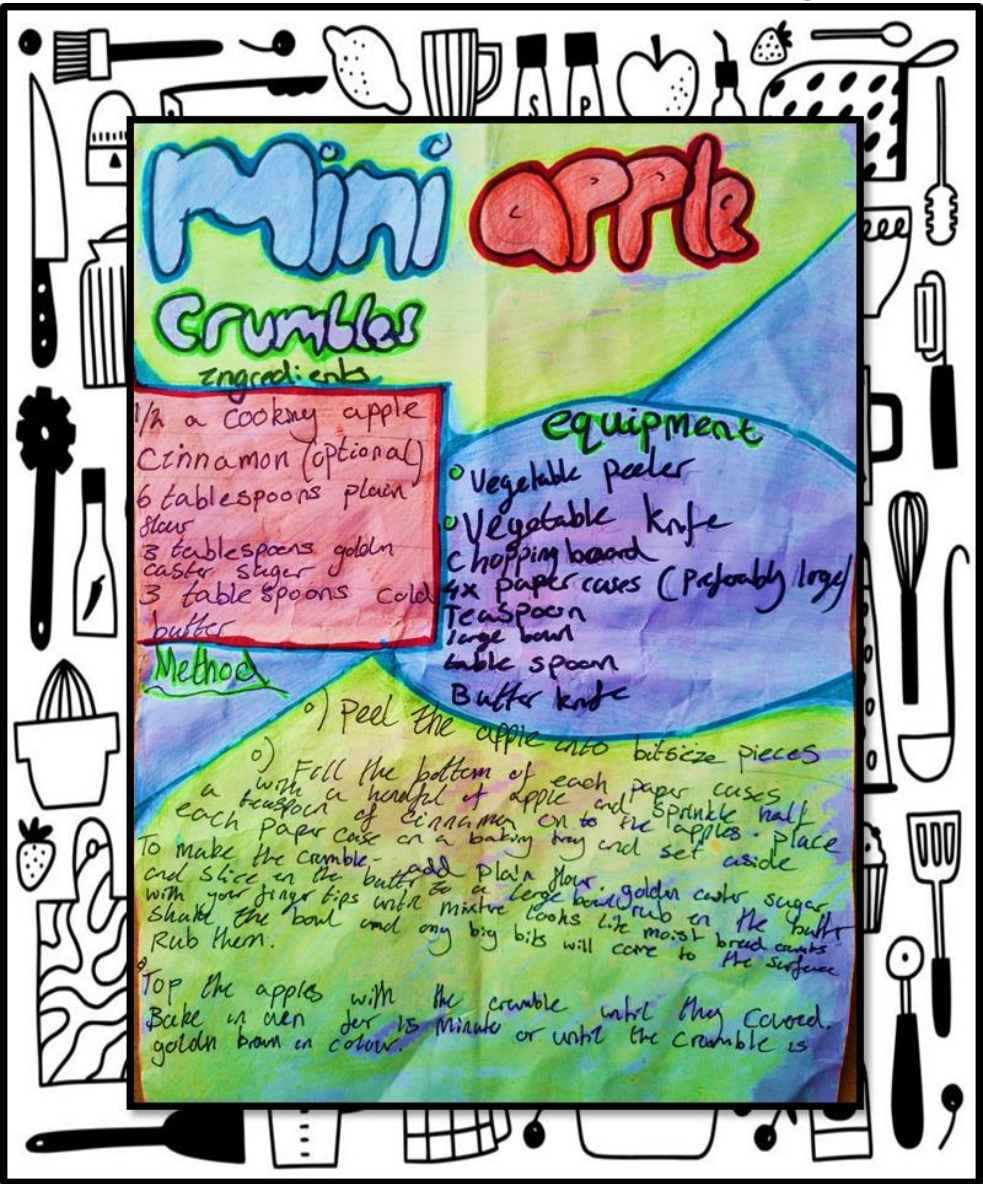 S P
Mini apple
Crumbles
Ingredients
1/2 a cooking apple
Cinnamon (optional)
6 tablespoons plain
flour
3 tablespoons goldn
caster sugar
3 tablespoons cold
butter
equipment
Vegetable peeler
Vegetable knfe
Chopping board
4x paper cases (preferably large)
Teaspoon
large bowl
table spoon
Butter knfe
Method
o) Peel the apple into bitsize pieces
o) Fill the bottom of each paper cases
with a handful of apple and sprinkle half
a teaspoon of cinnamon on to the apples. place
each paper case on a baking tray and set aside
To make the crumble- add plain flour. goldn caster sugar
and slice in the butter to a large bowl rub in the butter
with your finger tips until mixture looks like moist bread crumbs
shake the bowl and any big bits will come to the surface
Rub them.
Top the apples with the crumble until they covered.
Bake in oven for 15 minutes or until the crumble is
goldn brown in colour.